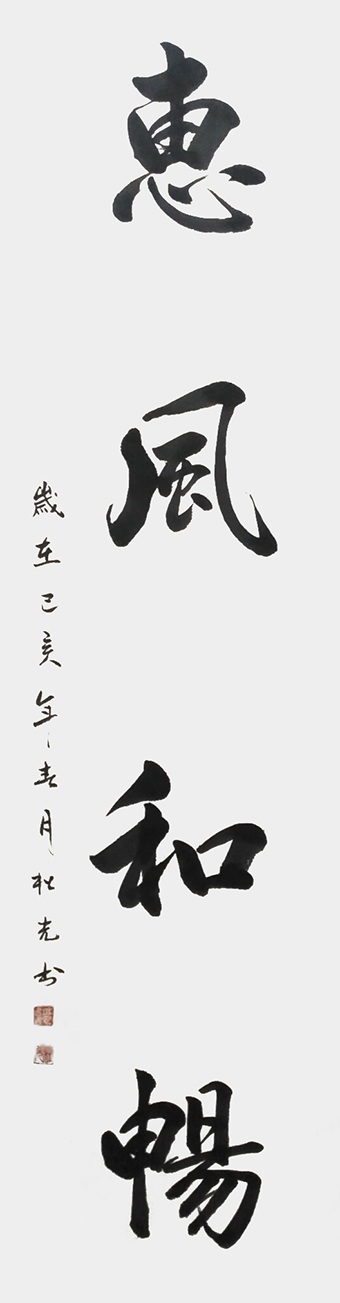 惠風和暢
歲在己亥年春月秋光书